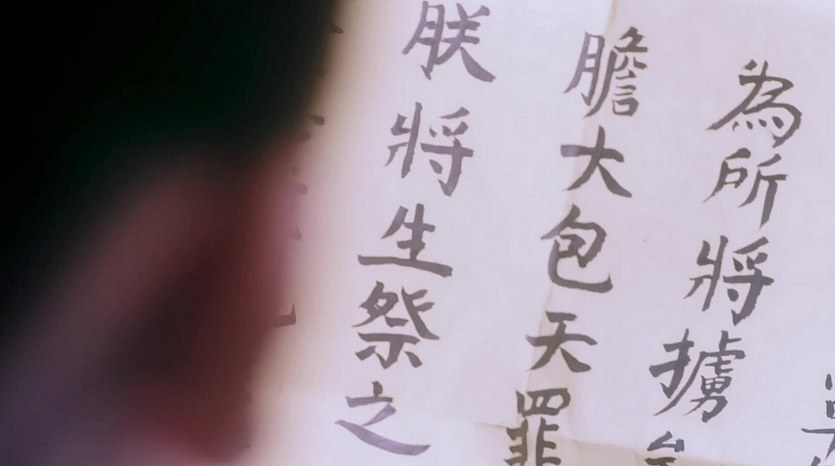 為所將擄
膽大包天罪
朕將生祭之